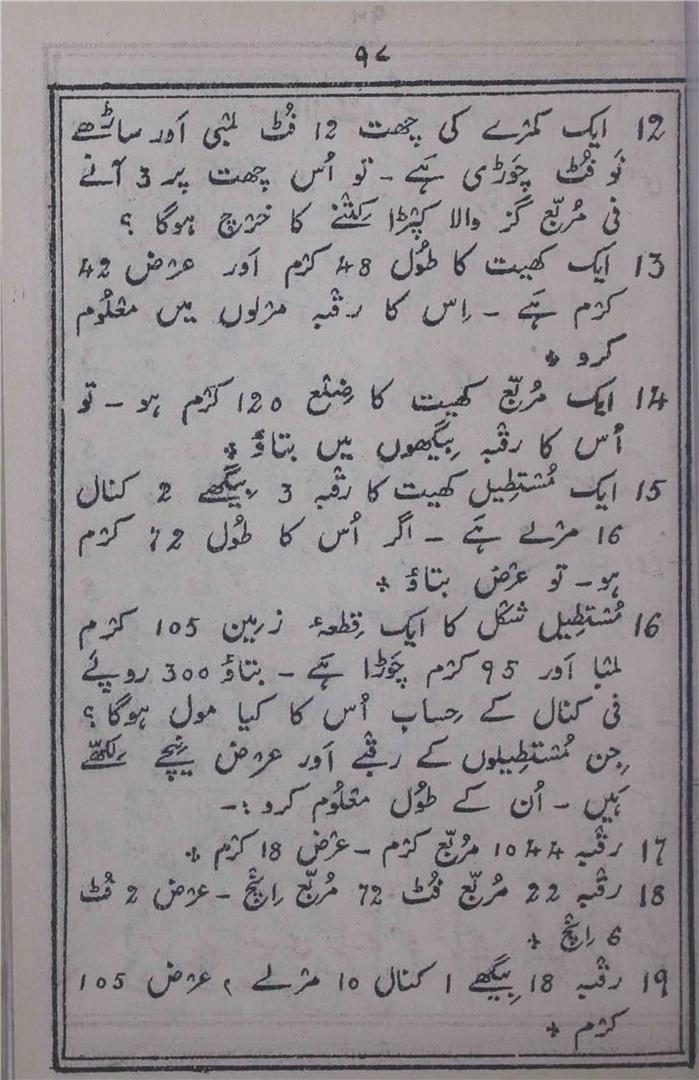 ۹۷
12 ایک کمرے کی چھت 12 فُٹ لمبی اَور ساڑھے
نَو فُٹ چَوڑی ہَے ۔ تو اُس چھت پر 3 آنے
فی مُربّع گز والا کپڑا کِتنے کا خرچ ہوگا ؟
13 ایک کھیت کا طُول 48 کرم اَور عرض 42
کرم ہَے ۔ اِس کا رقبہ مرلوں میں معلُوم
کرو ✤
14 ایک مُربّع کھیت کا ضِلع 120 کرم ہو ۔ تو
اُس کا رقبہ بِیگھوں میں بتاؤ ✤
15 ایک مُستطِیل کھیت کا رقبہ 3 بِیگھے 2 کنال
16 مرلے ہَے ۔ اگر اُس کا طُول 72 کرم
ہو ۔ تو عرض بتاؤ ✤
16 مُستطِیل شکل کا ایک قِطعۂ زمین 105 کرم
لمبا اَور 95 کرم چَوڑا ہَے ۔ بتاؤ 300 روپئے
فی کنال کے حِساب اُس کا کیا مول ہوگا ؟
جِن مُستطِیلوں کے رقبے اَور عرض نِیچے لِکھے
ہَیں ۔ اُن کے طُول معلُوم کرو :۔
17 رقبہ 1044 مُربّع کرم ۔ عرض 18 کرم ✤
18 رقبہ 22 مُربّع فُٹ 72 مُربّع اِنچ ۔ عرض 2 فُٹ
6 اِنچ ✤
19 رقبہ 18 بِیگھے 1 کنال 10 مرلے ، عرض 105
کرم ✤